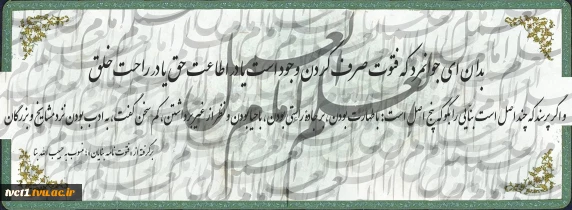 بدان ای جوانمرد که فتوت صرف کردن وجود است یا در اطاعت حق یا در راحت خلق
و اگر پرسند که چند اصل است بنایی را بگو که پنج اصل است: با طهارت بودن، بر جاده راستی بودن، با حیا بودن و نظر از غیر برداشتن، کم سخن گفتن، به ادب بودن نزد مشایخ و بزرگان
برگرفته از «فتوت نامه بنایان»: منسوب به حبیب الله بنا
tvct1.tvu.ac.ir